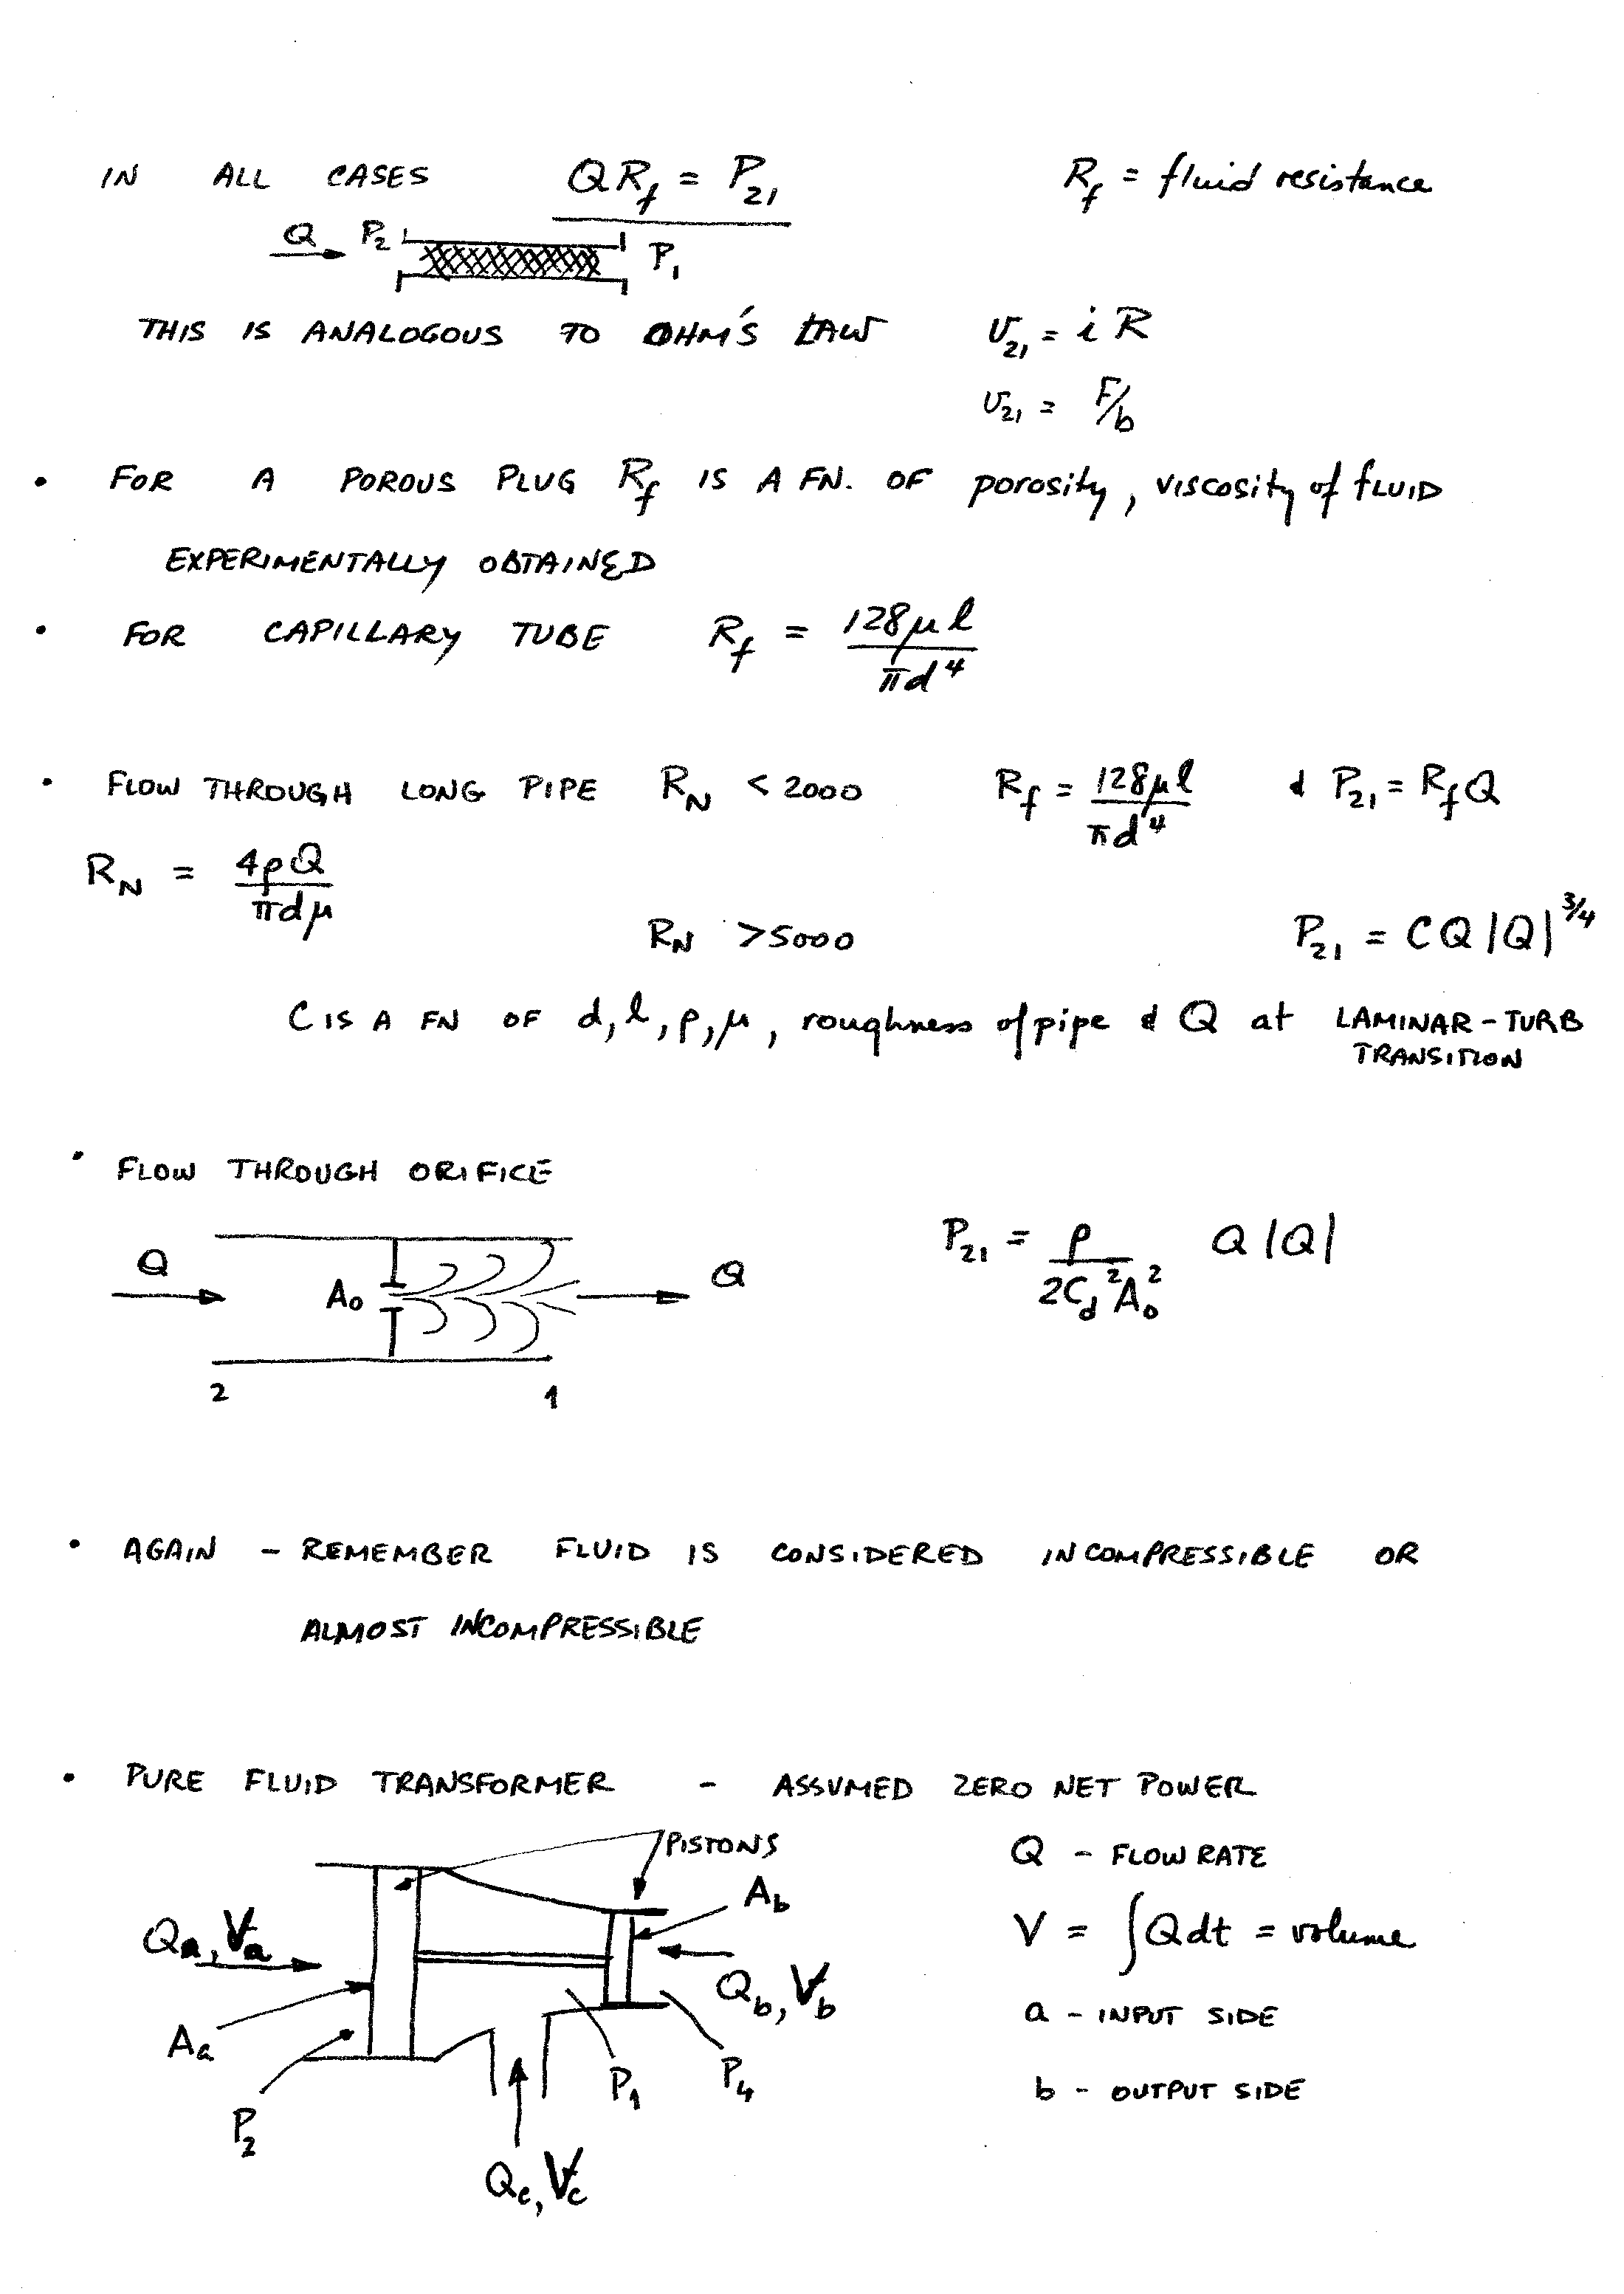 IN ALL CASES QR_f = P_21 R_f = fluid resistance
Q P_2 P_1
THIS IS ANALOGOUS TO OHM'S LAW v_21 = i R
v_21 = F/b
• FOR A POROUS PLUG R_f IS A FN. OF porosity, viscosity of fluid
EXPERIMENTALLY OBTAINED
• FOR CAPILLARY TUBE R_f = 128μl / πd^4
• FLOW THROUGH LONG PIPE R_N < 2000 R_f = 128μl / πd^4 & P_21 = R_f Q
R_N = 4ρQ / πdμ
R_N > 5000 P_21 = CQ|Q|^3/4
C IS A FN OF d, l, ρ, μ, roughness of pipe & Q at LAMINAR-TURB
TRANSITION
• FLOW THROUGH ORIFICE
Q A_o Q P_21 = ρ / 2C_d^2 A_o^2 Q|Q|
2 1
• AGAIN - REMEMBER FLUID IS CONSIDERED INCOMPRESSIBLE OR
ALMOST INCOMPRESSIBLE
• PURE FLUID TRANSFORMER - ASSUMED ZERO NET POWER
PISTONS Q - FLOW RATE
A_b
Q_a, V_a V = ∫Qdt = volume
Q_b, V_b
A_a a - INPUT SIDE
P_1 P_4 b - OUTPUT SIDE
P_2
Q_c, V_c